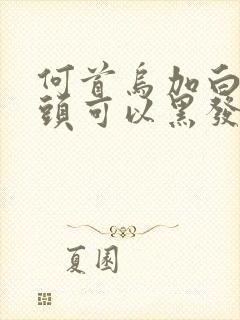 何首烏加白
頭可以黑發
夏園